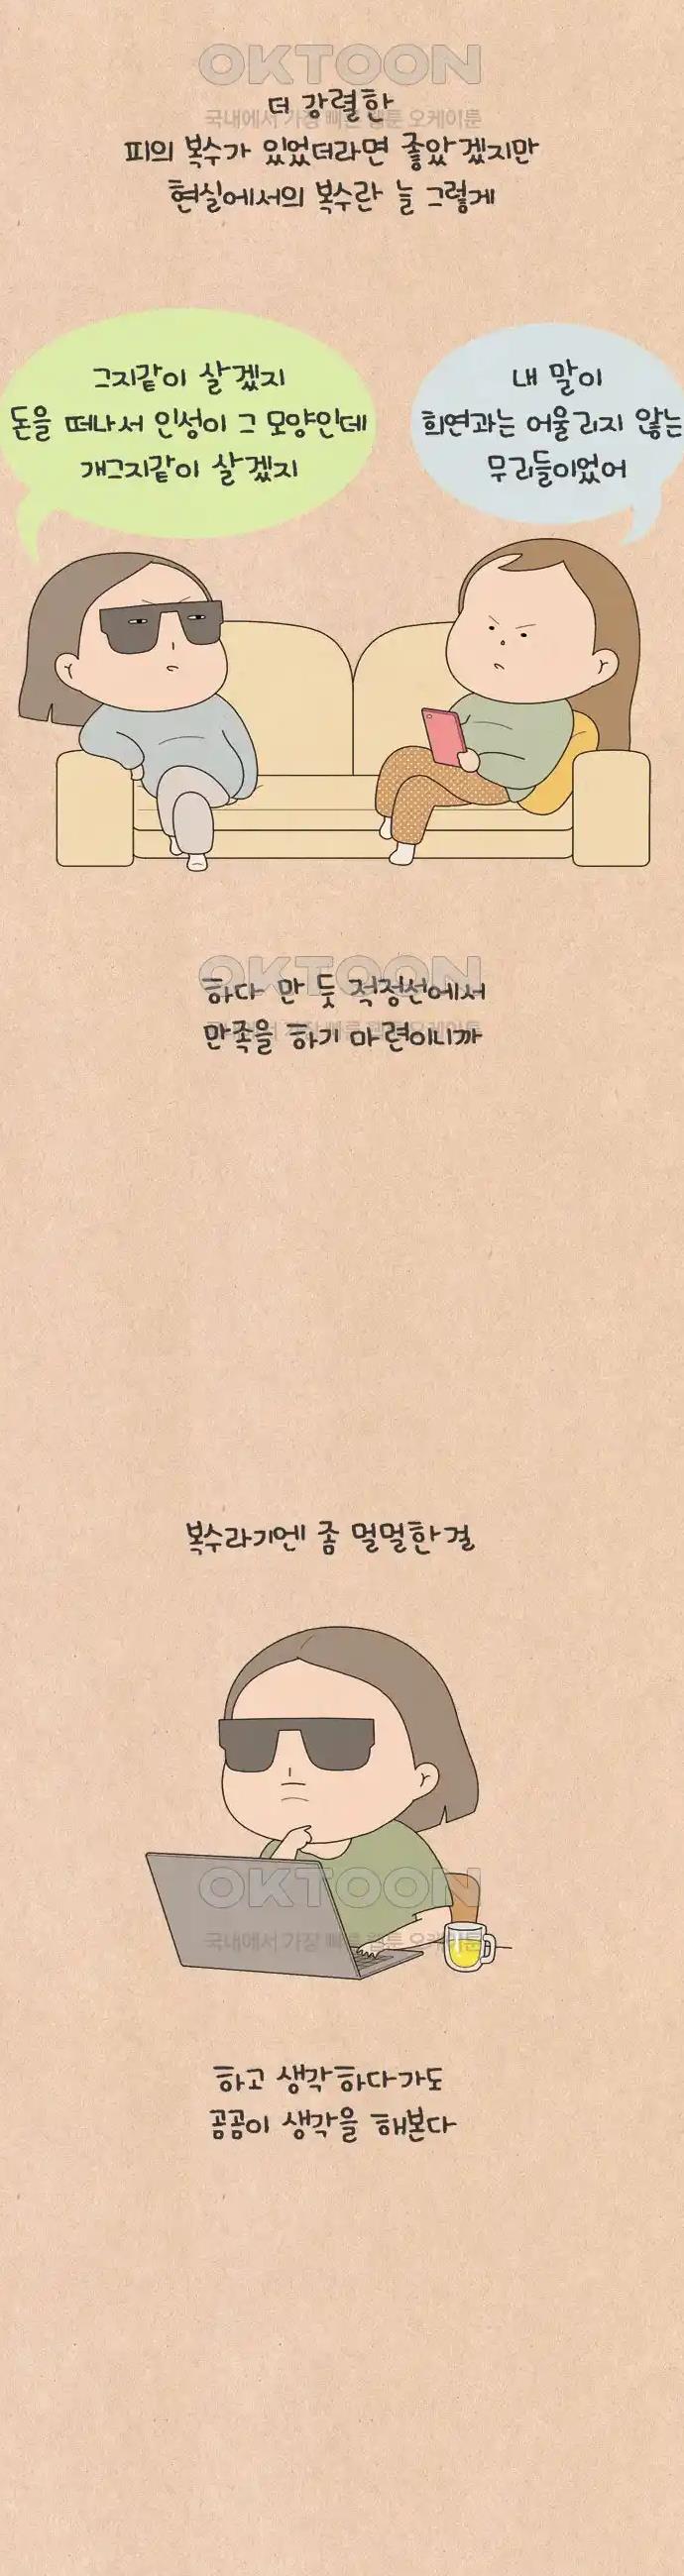 OKTOON
더 강렬한
국내에서 가장 빠른 웹툰 오케이툰
피의 복수가 있었더라면 좋았겠지만
현실에서의 복수란 늘 그렇게
그지같이 살겠지
돈을 떠나서 인성이 그 모양인데
개그지같이 살겠지
내 말이
희연과는 어울리지 않는
무리들이었어
OKTOON
하다 만 듯 적정선에서
만족을 하기 마련이니까
복수라기엔 좀 멀멀한걸
OKTOON
국내에서 가장 빠른 웹툰 오케이툰
하고 생각하다가도
곰곰이 생각을 해본다